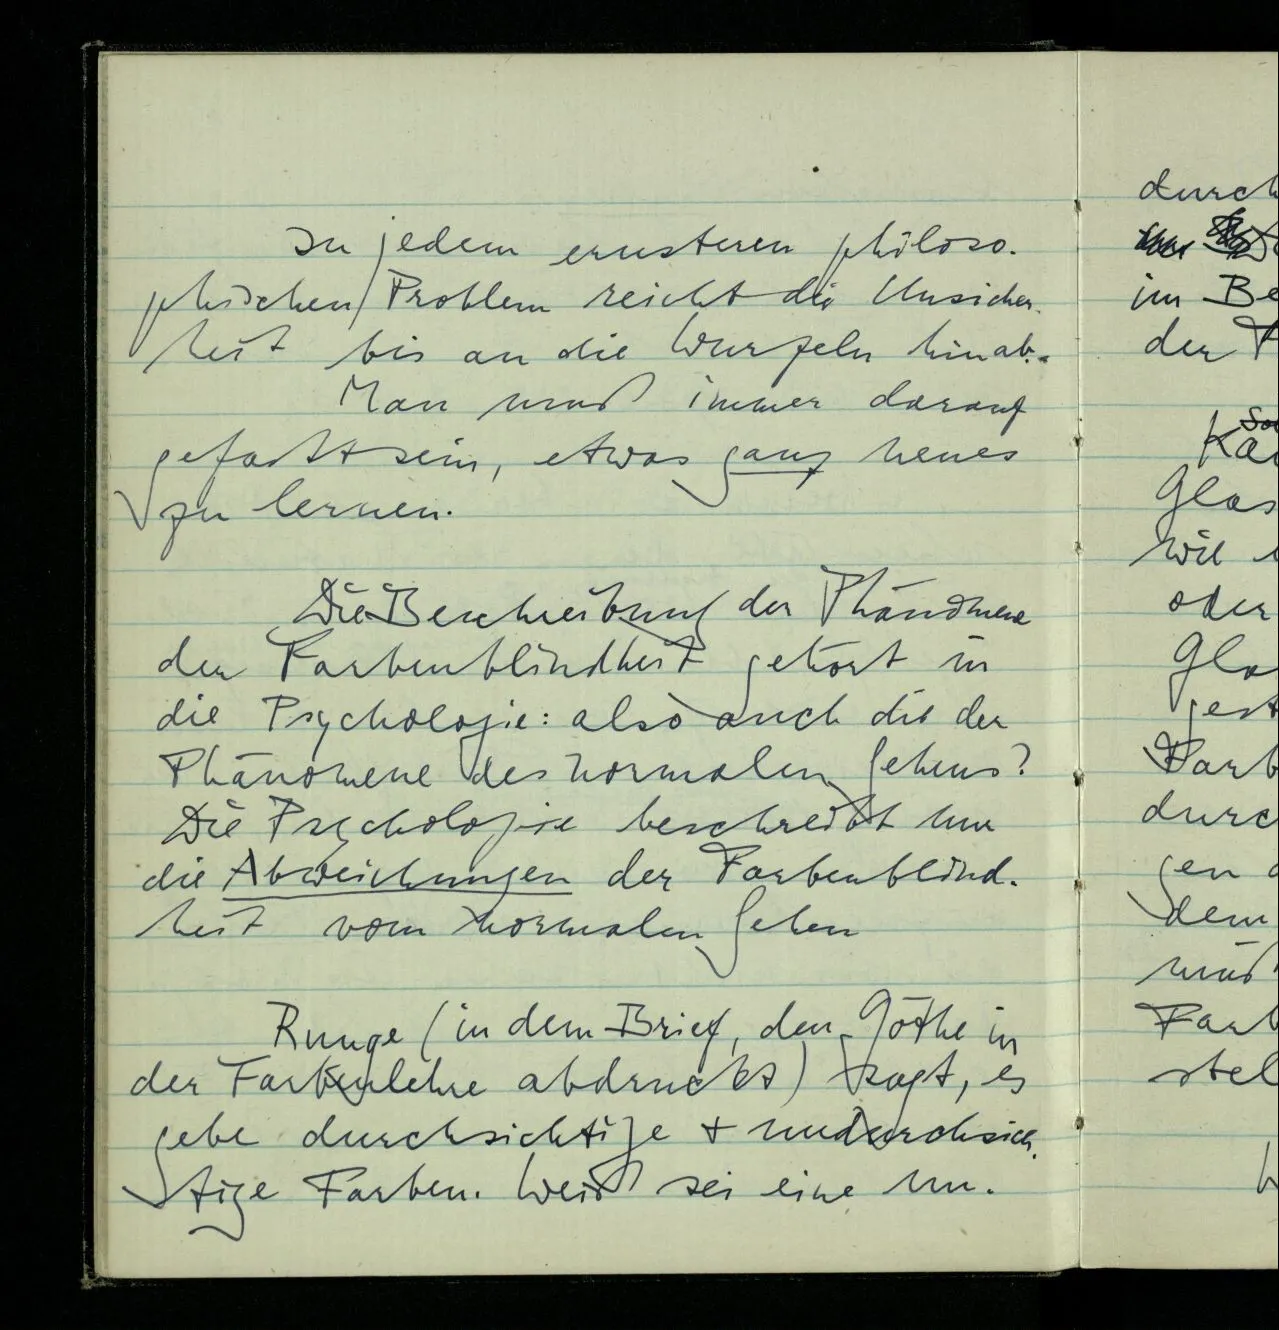 In jedem ernsteren philoso-
phischen Problem reicht die Unsicher-
heit bis an die Wurzeln hinab.
Man muß immer darauf
gefaßt sein, etwas ganz neues
zu lernen.
Die Beschreibung der Phänomene
der Farbenblindheit gehört in
die Psychologie: also auch die der
Phänomene des normalen Sehens?
Die Psychologie beschreibt nur
die Abweichungen der Farbenblind-
heit vom normalen Sehen
Runge (in dem Brief, den Göthe in
der Farbenlehre abdruckt) sagt, es
gebe durchsichtige + undurchsich-
tige Farben. Weiß sei eine un-
durch
im Be
der F
Glas
wie
oder
Gla
gest
Farb
durc
gen
dem
muß
Farb
stel